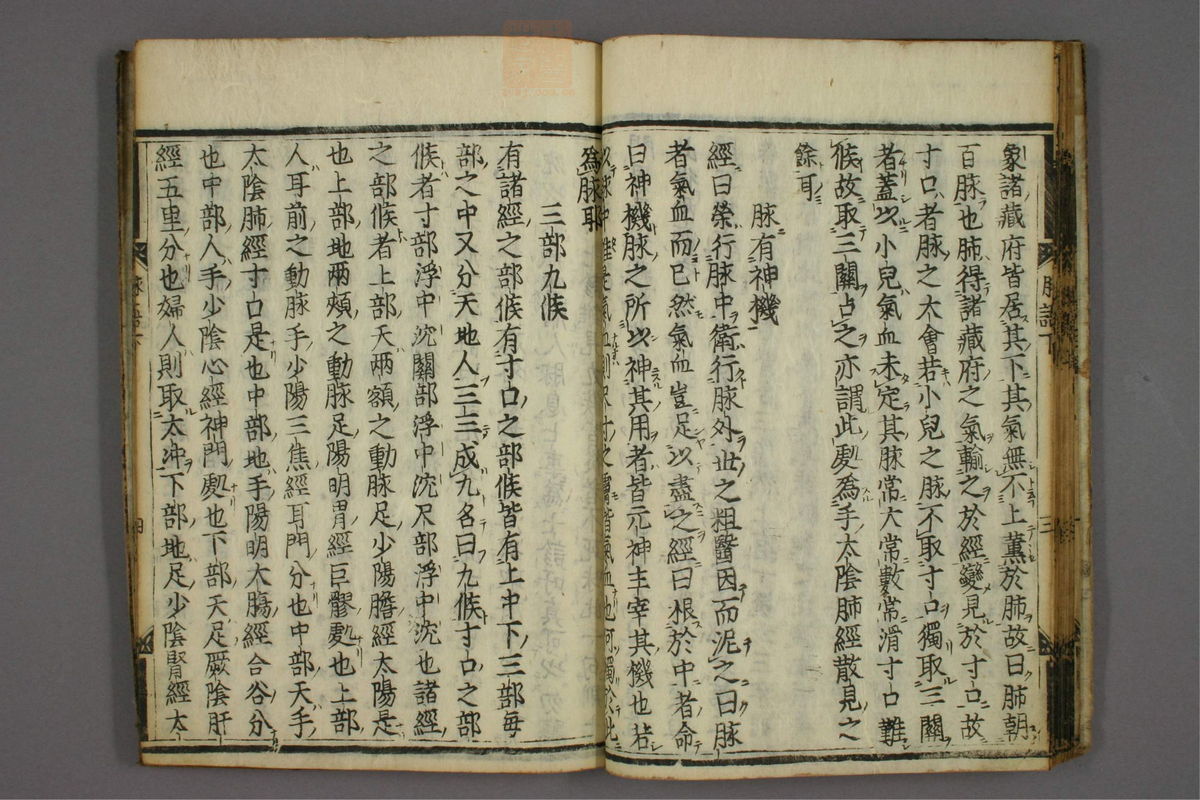 象諸藏府皆居其下其氣無不上薰於肺故曰肺朝
百脉也肺得諸藏府之氣輸之於經變見於寸口故
寸口者脉之大會若小兒之脉不取寸口獨取三關
者蓋以小兒氣血未定其脉常大常數常滑寸口難
候故取三關占之亦謂此處爲手太陰肺經散見之
餘耳
脉有神機
經曰榮行脉中衛行脉外世之粗醫因而泥之曰脉
者氣血而已然氣血豈足以盡之經曰根於中者命
曰神機脉之所以神其用者皆元神主宰其機也若
以脉中
氣血則尺寸之膚皆氣血也何獨於此
爲脉耶
三部九候
有諸經之部候有寸口之部候皆有上中下三部每
部之中又分天地人三三成九名曰九候寸口之部
候者寸部浮中沈關部浮中沈尺部浮中沈也諸經
之部候者上部天兩額之動脉足少陽膽經太陽是
也上部地兩頰之動脉足陽明胃經巨髎處也上部
人耳前之動脉手少陽三焦經耳門分也中部天手
太陰肺經寸口是也中部地手陽明大膓經合谷分
也中部人手少陰心經神門處也下部天足厥陰肝
經五里分也婦人則取太冲下部地足少陰腎經太
脉語下
三
四